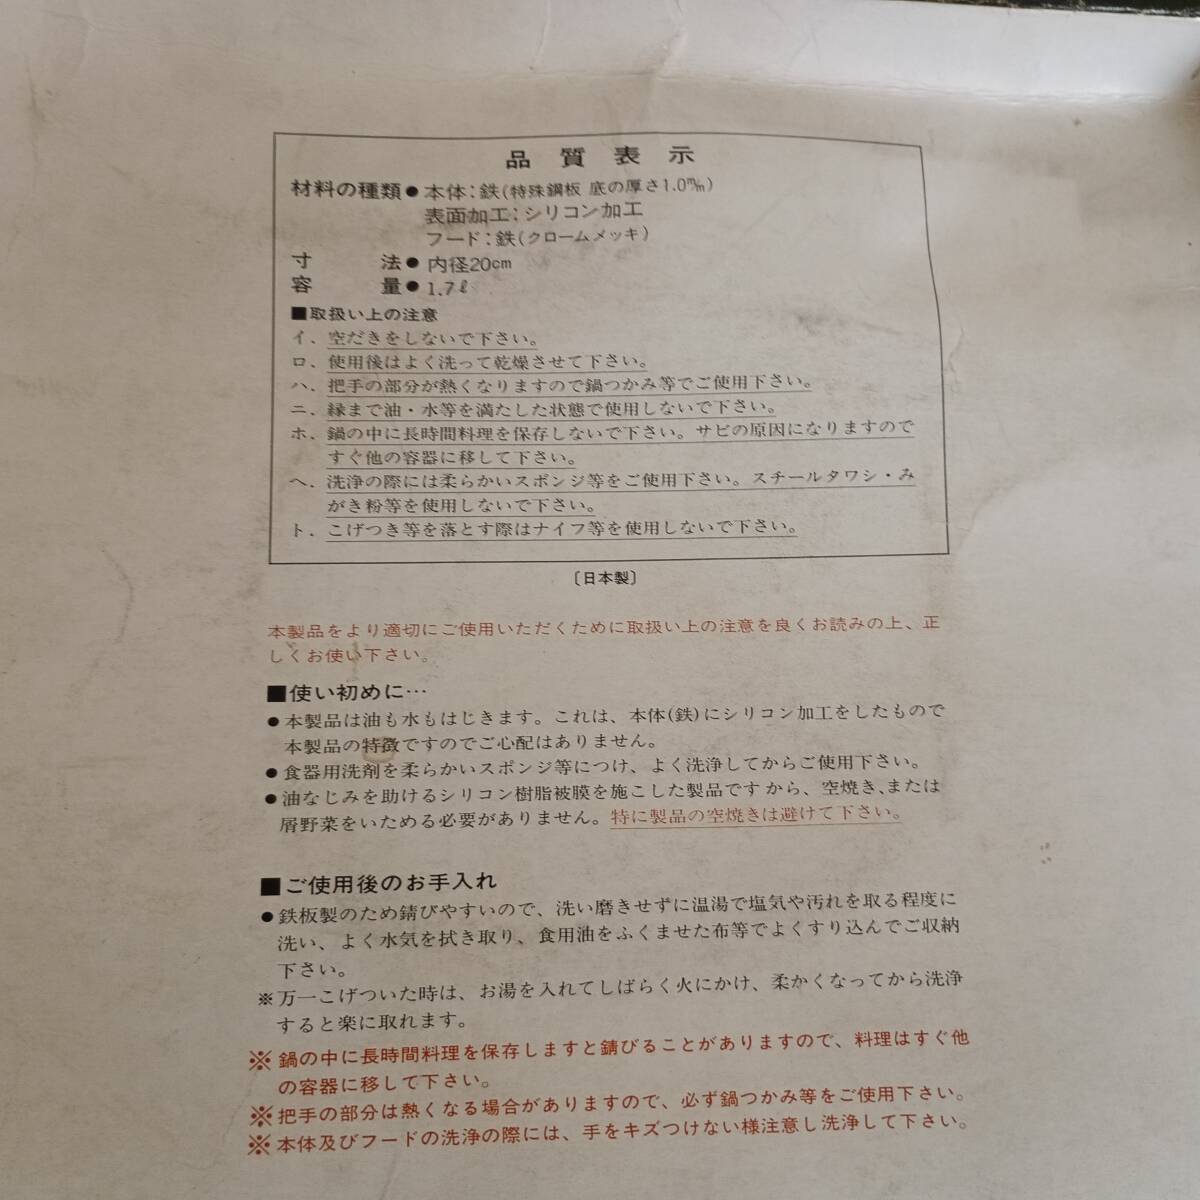 品質表示
材料の種類●本体：鉄（特殊鋼板 底の厚さ1.0㎜）
表面加工：シリコン加工
フード：鉄（クロームメッキ）
寸法●内径20cm
容量●1.7ℓ
■取扱い上の注意
イ．空だきをしないで下さい。
ロ．使用後はよく洗って乾燥させて下さい。
ハ．把手の部分が熱くなりますので鍋つかみ等でご使用下さい。
ニ．縁まで油・水等を満たした状態で使用しないで下さい。
ホ．鍋の中に長時間料理を保存しないで下さい。サビの原因になりますので
すぐ他の容器に移して下さい。
ヘ．洗浄の際には柔らかいスポンジ等をご使用下さい。スチールタワシ・み
がき粉等を使用しないで下さい。
ト．こげつき等を落とす際はナイフ等を使用しないで下さい。
〔日本製〕
本製品をより適切にご使用いただくために取扱い上の注意を良くお読みの上、正
しくお使い下さい。
■使い初めに…
●本製品は油も水もはじきます。これは、本体(鉄)にシリコン加工をしたもので
本製品の特徴ですのでご心配はありません。
●食器用洗剤を柔らかいスポンジ等につけ、よく洗浄してからご使用下さい。
●油なじみを助けるシリコン樹脂被膜を施こした製品ですから、空焼き、または
屑野菜をいためる必要がありません。特に製品の空焼きは避けて下さい。
■ご使用後のお手入れ
●鉄板製のため錆びやすいので、洗い磨きせずに温湯で塩気や汚れを取る程度に
洗い、よく水気を拭き取り、食用油をふくませた布等でよくすり込んでご収納
下さい。
※万一こげついた時は、お湯を入れてしばらく火にかけ、柔かくなってから洗浄
すると楽に取れます。
※鍋の中に長時間料理を保存しますと錆びることがありますので、料理はすぐ他
の容器に移して下さい。
※把手の部分は熱くなる場合がありますので、必ず鍋つかみ等をご使用下さい。
※本体及びフードの洗浄の際には、手をキズつけない様注意し洗浄して下さい。